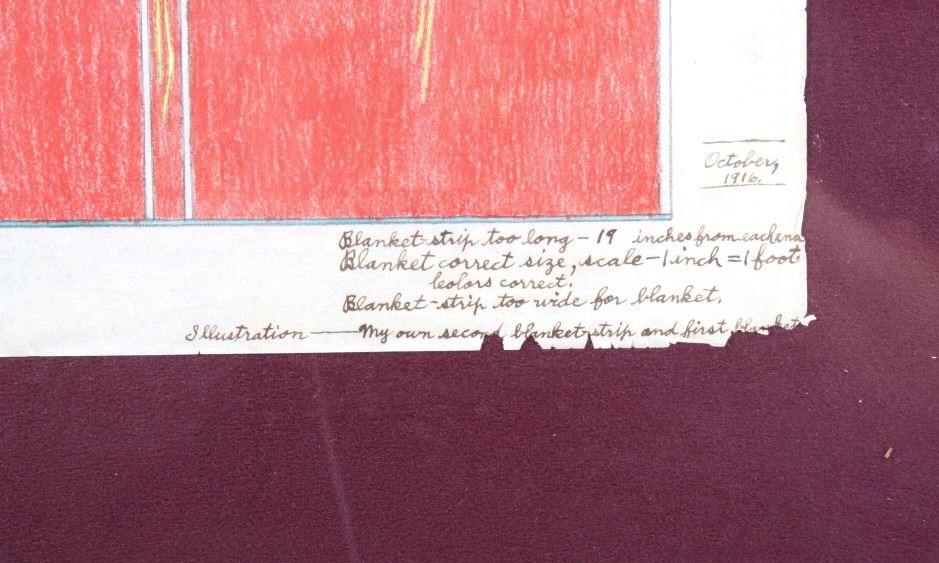 October,
1916.
Blanket-strip too long - 19 inches from each end
Blanket correct size, scale - 1 inch = 1 foot
Colors correct.
Blanket-strip too wide for blanket.
Illustration — My own second blanket-strip and first blanket